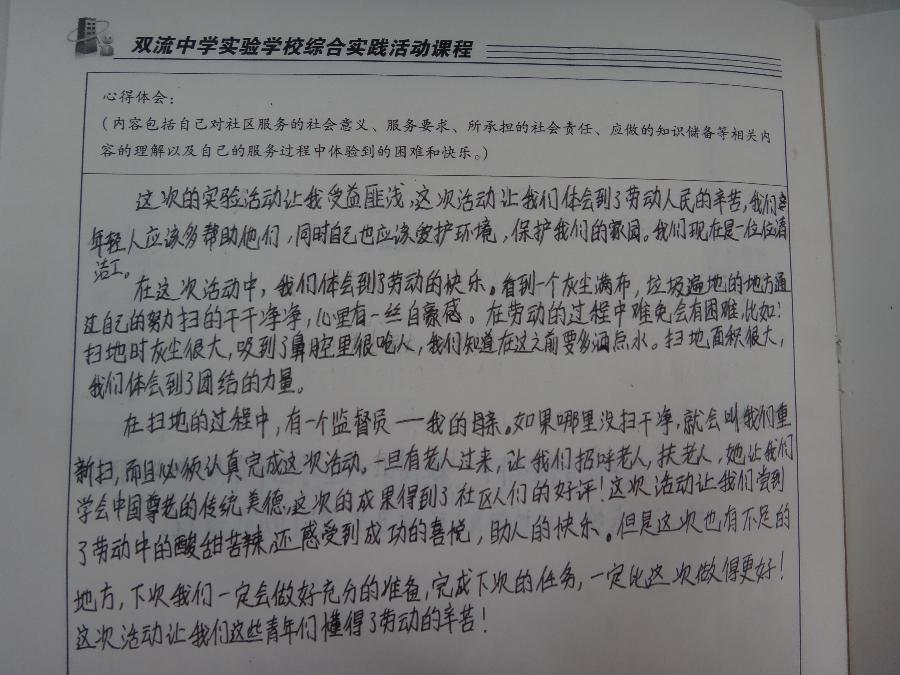 双流中学实验学校综合实践活动课程
心得体会：
（内容包括自己对社区服务的社会意义、服务要求、所承担的社会责任、应做的知识储备等相关内
容的理解以及自己的服务过程中体验到的困难和快乐。）
这次的实验活动让我受益匪浅，这次活动让我们体会到了劳动人民的辛苦，我们
年轻人应该多帮助他们，同时自己也应该爱护环境，保护我们的家园。我们现在是一位位清
洁工。
在这次活动中，我们体会到了劳动的快乐。看到一个灰尘满布，垃圾遍地的地方通
过自己的努力扫的干干净净，心里有一丝自豪感。在劳动的过程中难免会有困难，比如：
扫地时灰尘很大，吸到了鼻腔里很呛人，我们知道在这之前要多洒点水。扫地面积很大，
我们体会到了团结的力量。
在扫地的过程中，有一个监督员——我的母亲。如果哪里没扫干净，就会叫我们重
新扫，而且必须认真完成这次活动。一旦有老人过来，让我们招呼老人，扶老人，她让我们
学会中国尊老的传统美德。这次的成果得到了社区人们的好评！这次活动让我们尝到
了劳动中的酸甜苦辣，还感受到成功的喜悦，助人的快乐。但是这次也有不足的
地方，下次我们一定会做好充分的准备，完成下次的任务，一定比这次做得更好！
这次活动让我们这些青年们懂得了劳动的辛苦！